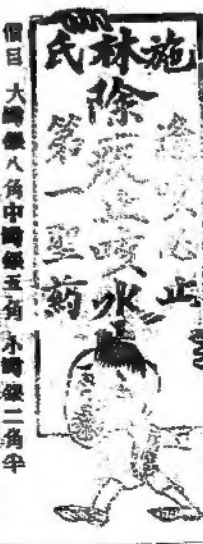 施林氏
逢咳必止
除痰主咳水
第一聖葯
價目 大罇銀八角中罇銀五角小罇銀二角半